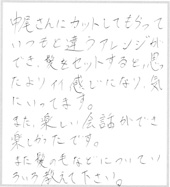 中尾さんにカットしてもらって
いつもと違うアレンジが
でき、髪をセットすると、思っ
たよりイイ感じになり、気
にいってます。
また、楽しい会話ができ
楽しかったです。
また髪のもなどについてい
ろいろ教えて下さい。